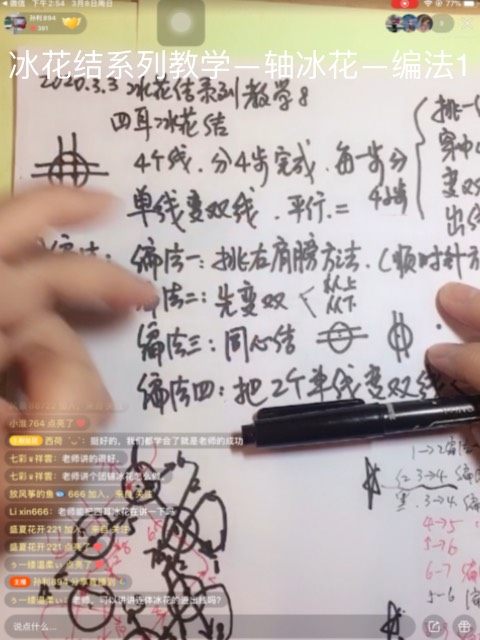 微信 下午2:54 3月8日周日 77%
孙利894
391
9
冰花结系列教学—轴冰花—编法1
2020.3.3 冰花结系列教学8
四耳冰花结
4个线.分4步完成.每一步分
4小步
单线变双线.平行.=
挑一
变双
编法一:挑左肩膀方法.(顺时针方
编法二:先变双 从上
从下
编法三:同心结
编法四:把2个单线变双线
小淮764 点亮了
西荷 ︶: 挺好的,我们都学会了就是老师的成功
七彩祥雲: 老师讲的很好,
七彩祥雲: 老师讲个团锦冰花怎么做,
放风筝的鱼 666 加入,来自 关注
Li xin666: 老师能把四耳冰花在讲一下吗
盛夏花开221 加入,来自 关注
盛夏花开221 点亮了
ぅ一缕温柔ぃ 点亮了
主播 孙利894 分享直播到
ぅ一缕温柔ぃ: 老师,可以讲讲连体冰花的进出线吗?
说点什么...
1→2 编
红 3→4 编
黑 3→4 编
4→5
5→6
6-7 编
5-6 编